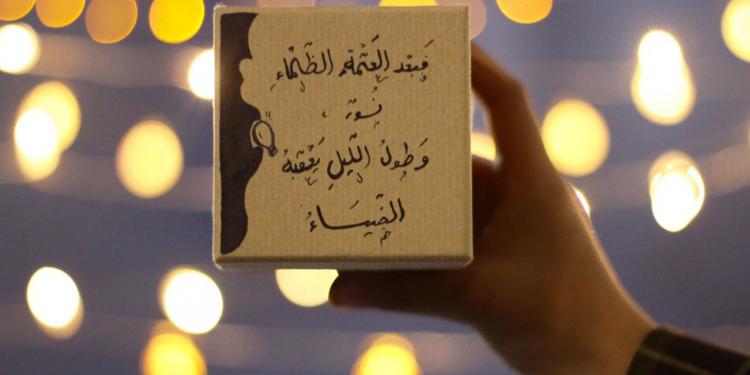 فَبَعْد العَتْمَةِ الظَّلْمَاءِ
نُورٌ ،
وَطولُ اللَّيلِ يَعْقبهُ
الضِّيَاءُ